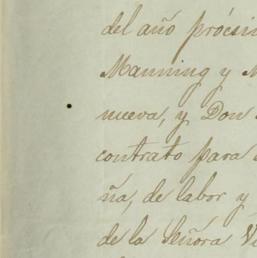 del año prócsi
Manning y M
nueva, y Don
contrato para
ña, de labor y
de la Señora V